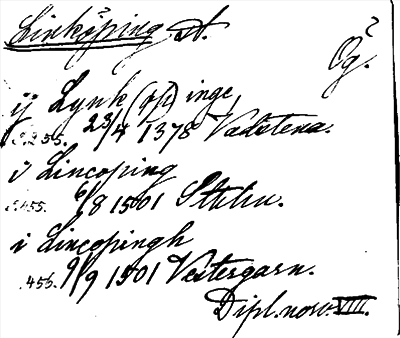 Linköping St.
Ög.
ij Lynk(øp)inge,
s.255. 23/4 1378 Vadstena.
i Lincoping
s.455. 6/8 1501 Sthlm.
i Lincopingh
.456. 9/9 1501 Vestergarn.
Dipl. norv. VIII.